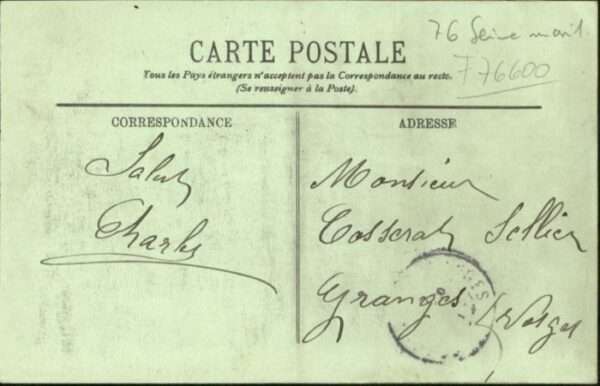 76 Seine marit.
F76600
CARTE POSTALE
Tous les Pays étrangers n'acceptent pas la Correspondance au recto.
(Se renseigner à la Poste).
CORRESPONDANCE
ADRESSE
Salut
Charles
Monsieur
Cosserat Sellier
Granges Vosges